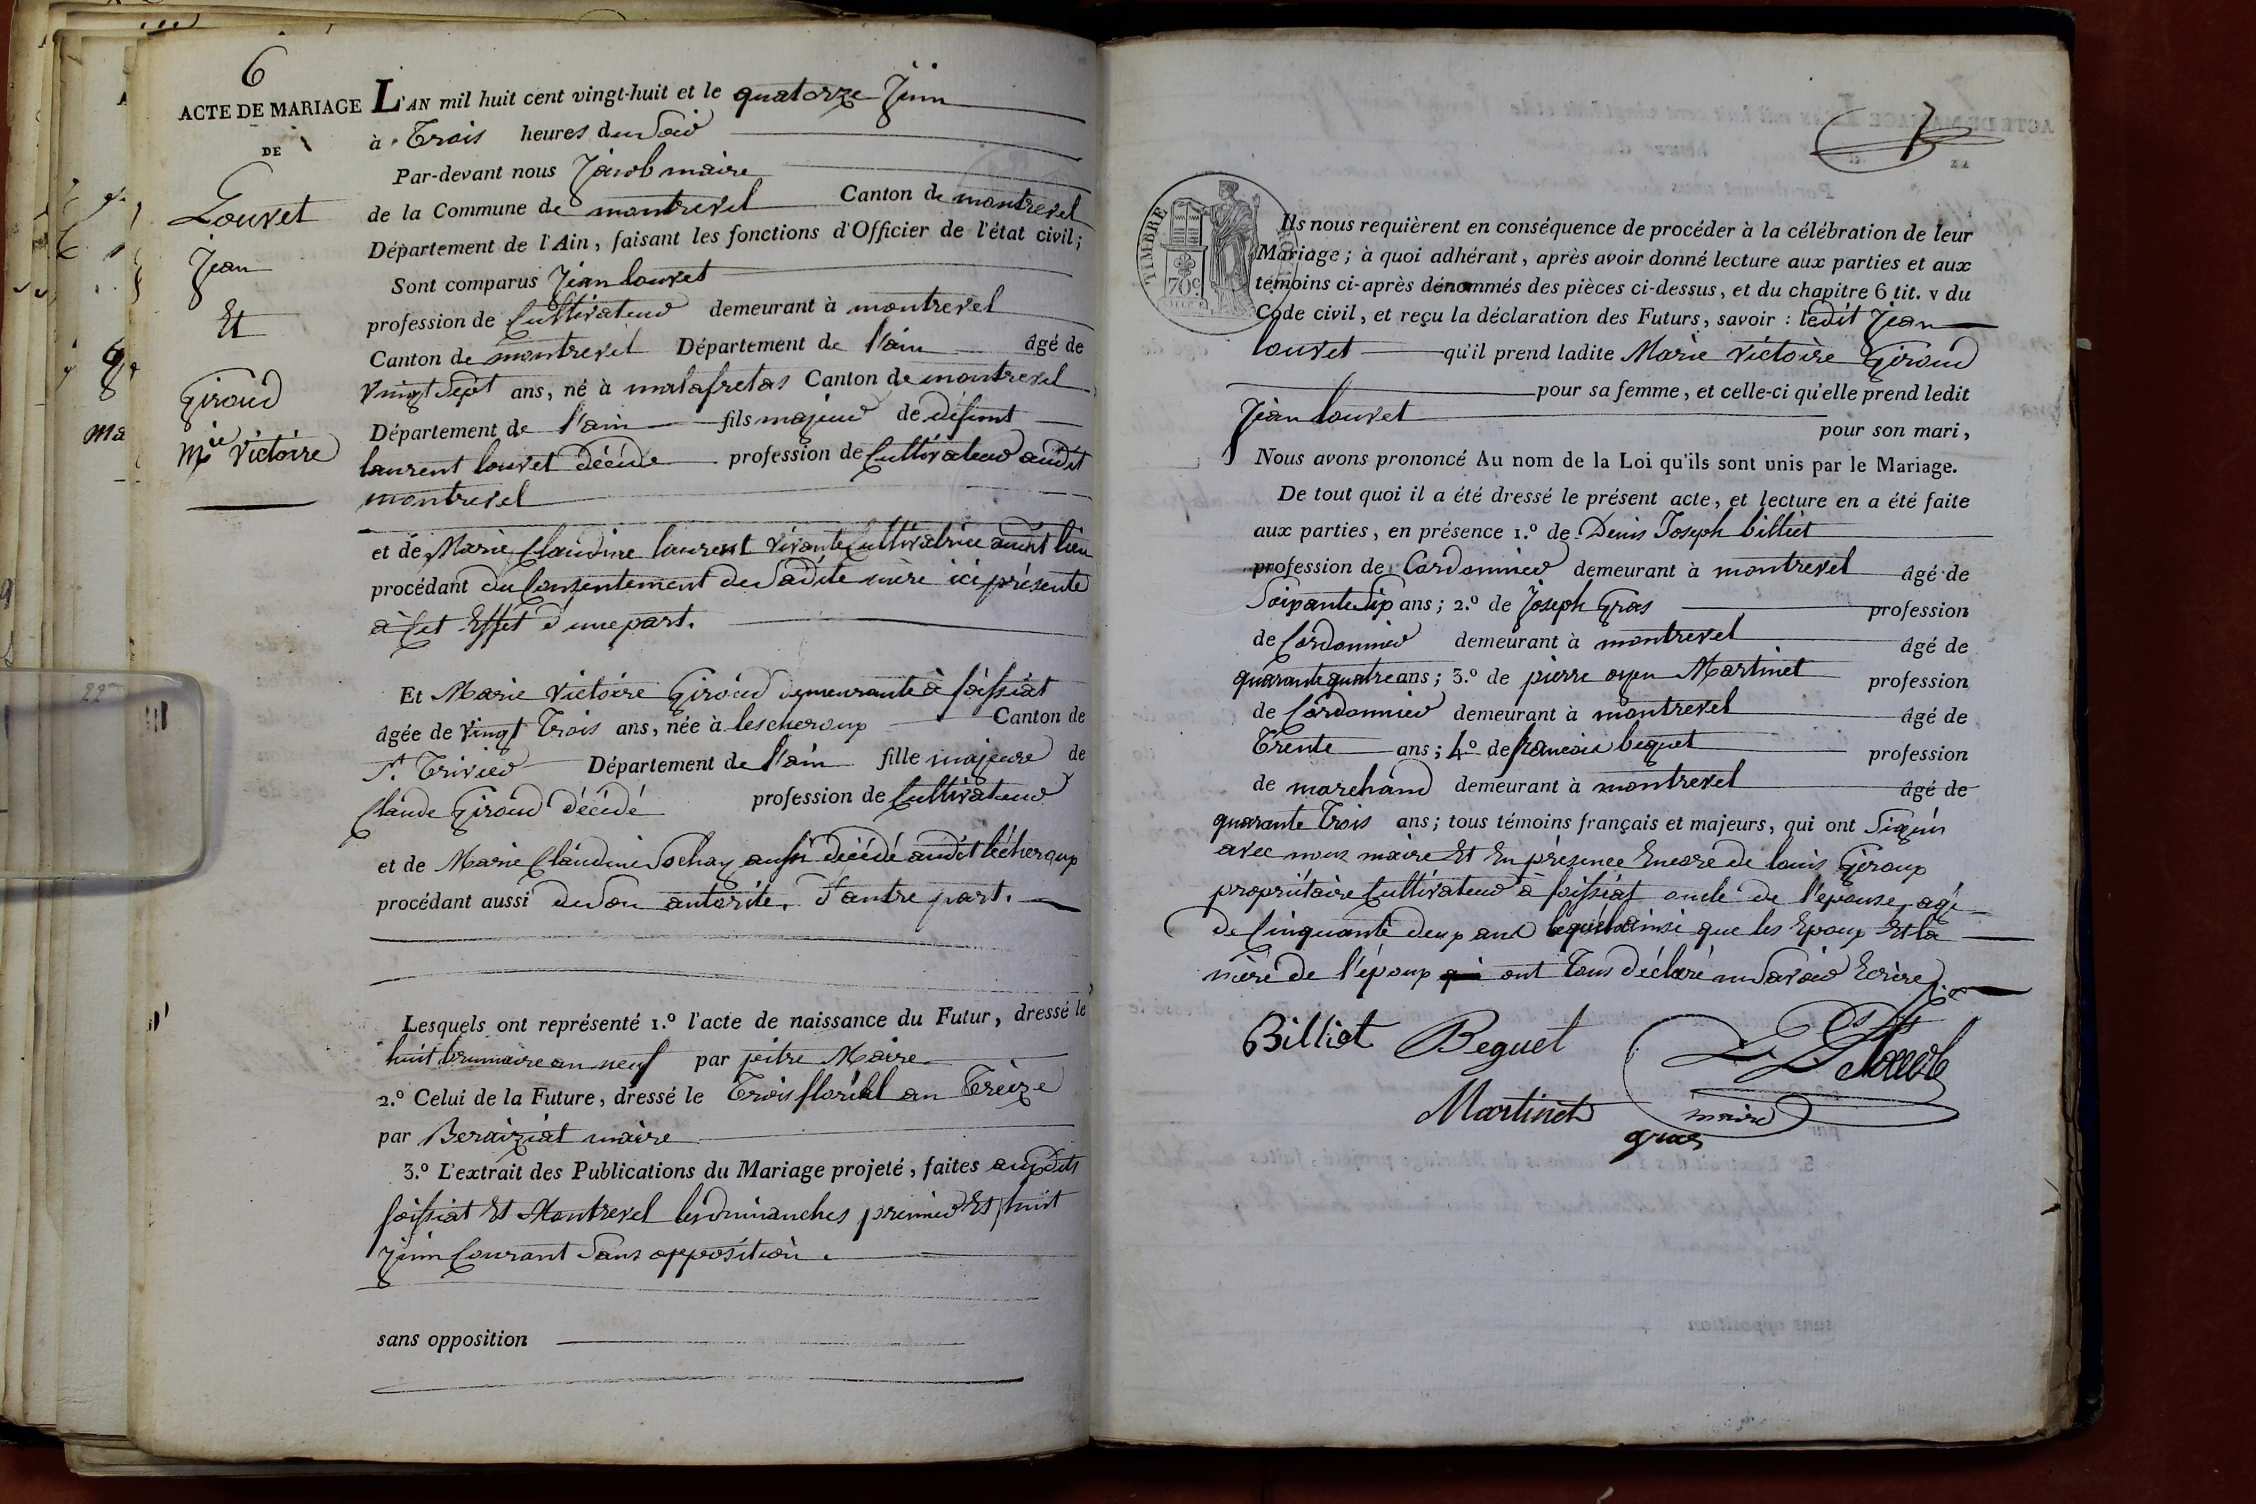 6
ACTE DE MARIAGE
DE
Louvet
Jean
Et
Giroud
Mie Victoire
L'AN mil huit cent vingt-huit et le quatorze Juin
à Trois heures du Soir
Par-devant nous Jacob maire
de la Commune de montrevel Canton de montrevel
Département de l'Ain, faisant les fonctions d'Officier de l'état civil;
Sont comparus Jean louvet
profession de Cultivateur demeurant à montrevel
Canton de montrevel Département de l'ain âgé de
vingt Sept ans, né à malafretas Canton de montrevel
Département de l'ain fils majeur de défunt
laurent louvet décédé profession de Cultivateur audit
montrevel
et de Marie Claudine laurent vivante Cultivatrice audit lieu
procédant du Consentement de Sadite mère ici présente
à Cet Effet d'une part.
Et Marie Victoire Giroud demeurante à foissiat
âgée de vingt Trois ans, née à lescheroup Canton de
St. Trivier Département de l'ain fille majeure de
Claude Giroud décédé profession de Cultivateur
et de Marie Claudine Sochay aussi décédé audit lécheroup
procédant aussi de Son autorité. d'autre part.
Lesquels ont représenté 1.º l'acte de naissance du Futur, dressé le
huit brumaire an neuf par peitre Maire
2.º Celui de la Future, dressé le Trois floréal an Treize
par Beraiziat maire
3.º L'extrait des Publications du Mariage projeté, faites auxdits
foissiat Et Montrevel les dimanches premier Et huit
Juin Courant Sans opposition.
sans opposition
7
TIMBRE
70c
Ils nous requièrent en conséquence de procéder à la célébration de leur
Mariage; à quoi adhérant, après avoir donné lecture aux parties et aux
témoins ci-après dénommés des pièces ci-dessus, et du chapitre 6 tit. v du
Code civil, et reçu la déclaration des Futurs, savoir : ledit Jean
louvet qu'il prend ladite Marie Victoire Giroud
pour sa femme, et celle-ci qu'elle prend ledit
Jean louvet
pour son mari,
Nous avons prononcé Au nom de la Loi qu'ils sont unis par le Mariage.
De tout quoi il a été dressé le présent acte, et lecture en a été faite
aux parties, en présence 1.º de Denis Joseph billiet
profession de Cordonnier demeurant à montrevel âgé de
Soixante Six ans; 2.º de Joseph Gras profession
de Cordonnier demeurant à montrevel âgé de
quarante quatre ans; 3.º de pierre oyen Martinet profession
de Cordonnier demeurant à montrevel âgé de
Trente ans; 4º de francois beguet profession
de marchand demeurant à montrevel âgé de
quarante Trois ans; tous témoins français et majeurs, qui ont Signés
avec nous maire Et En présence Encore de louis Giroup
propriétaire Cultivateur à foissiat oncle de l'epouse, agé
de Cinquante deux ans lequel ainsi que les Epoux Et la
mère de l'époux ont Tous déclaré ne Savoir Ecrire.
Billiet Beguet Jacob
Martinet maire
gras